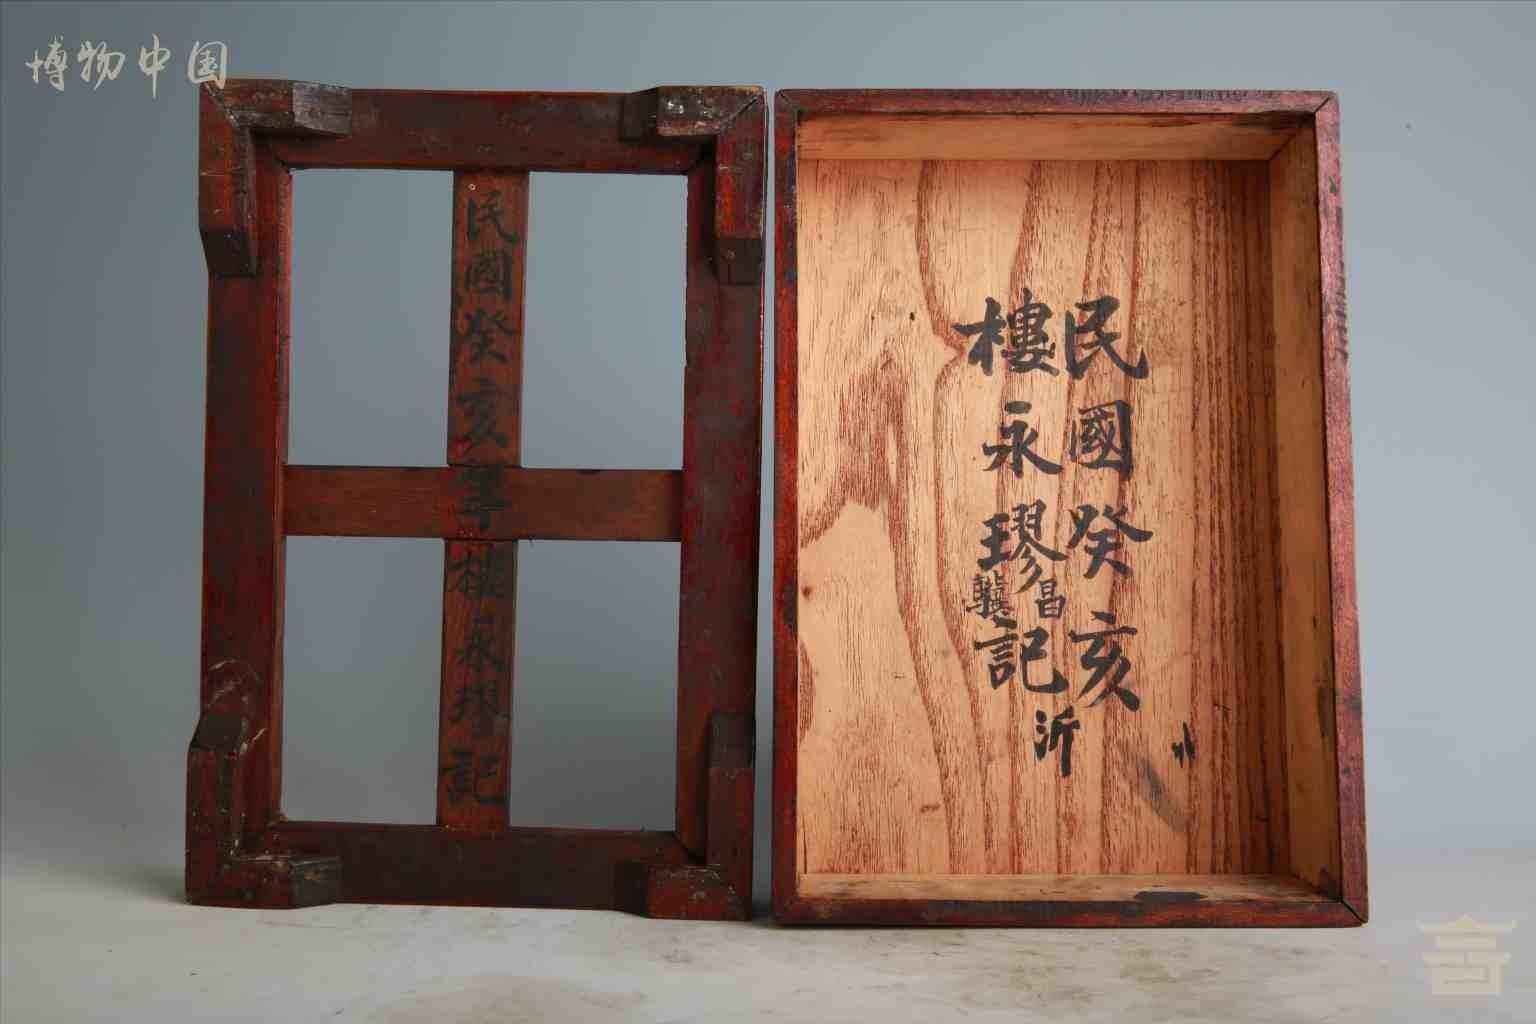 博物中国
民國癸亥年樓永璆記
民國癸亥
樓永璆記
昌
沂